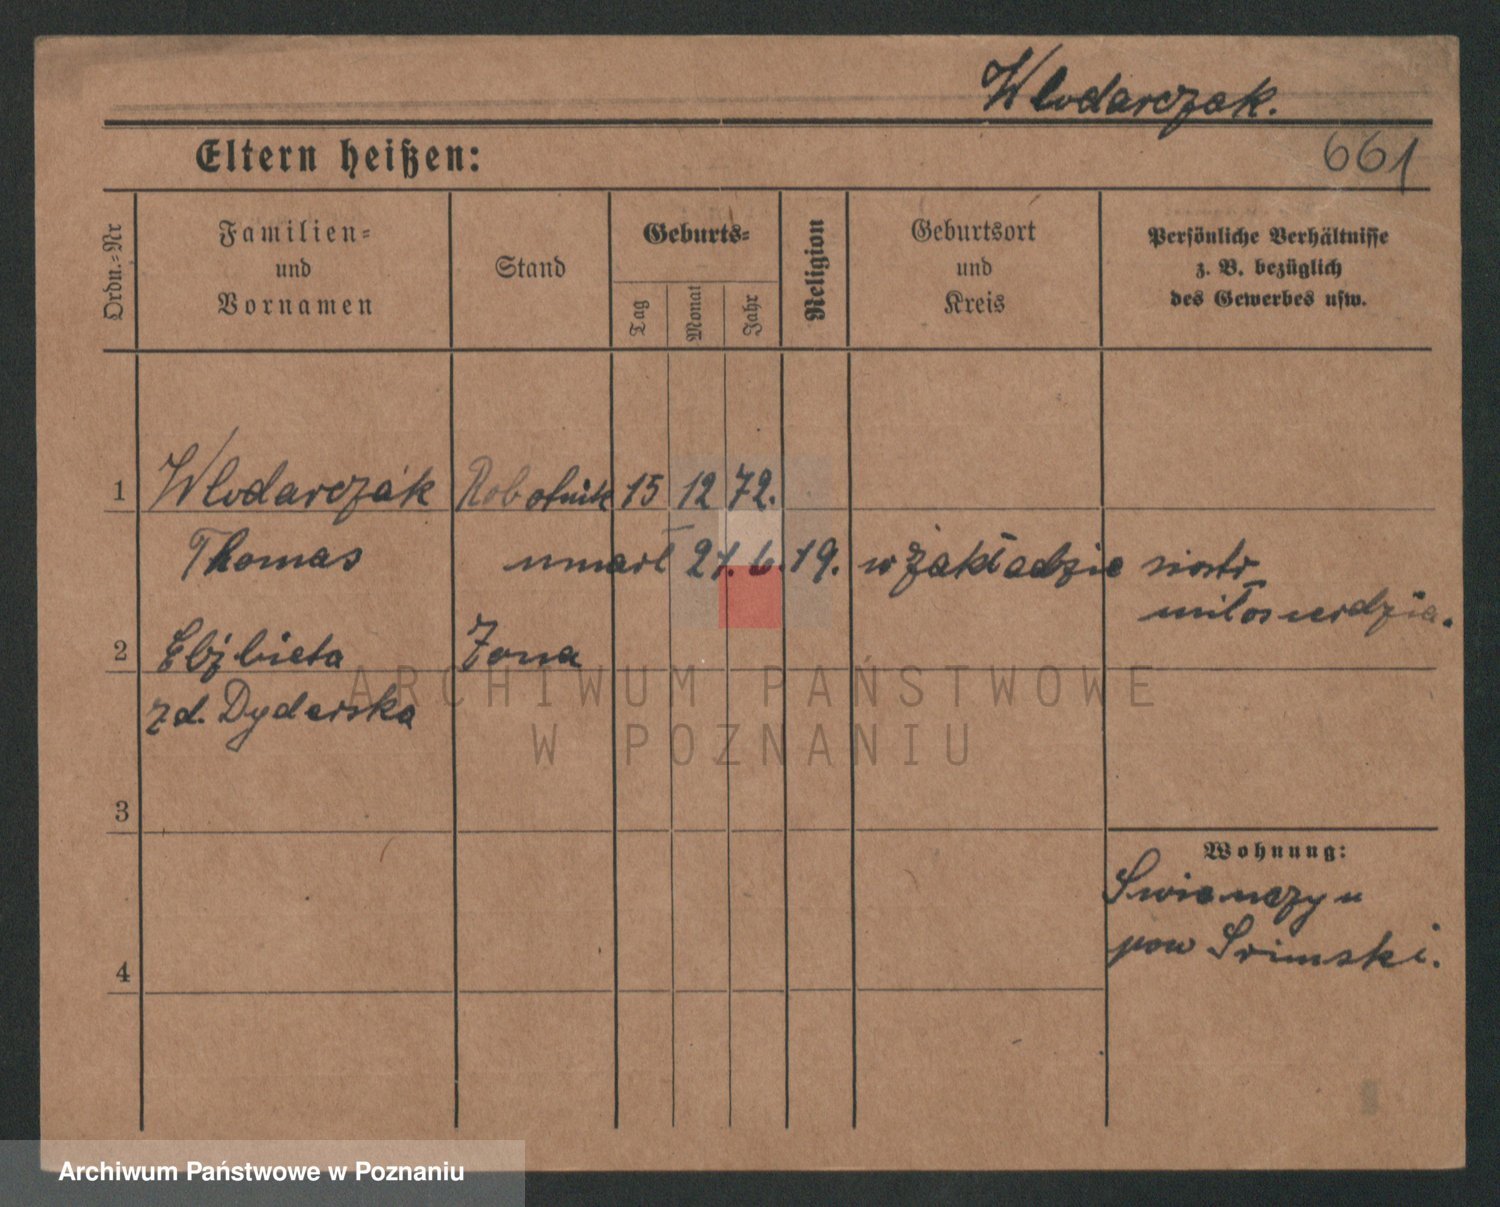 Wlodarczak.
661
Eltern heißen:
Ordn.-Nr
Familien-
und
Vornamen
Stand
Geburts-
Tag
Monat
Jahr
Religion
Geburtsort
und
Kreis
Persönliche Verhältnisse
z. B. bezüglich
des Gewerbes usw.
1 Wlodarczak Robotnik 15 12 72.
Thomas umarł 21. 6. 19. w zakładzie siostr
miłosierdzia.
2 Elżbieta Żona
zd. Dyderska
3
Wohnung:
Swienczyn
pow Srimski.
4
ARCHIWUM PAŃSTWOWE
W POZNANIU
Archiwum Państwowe w Poznaniu